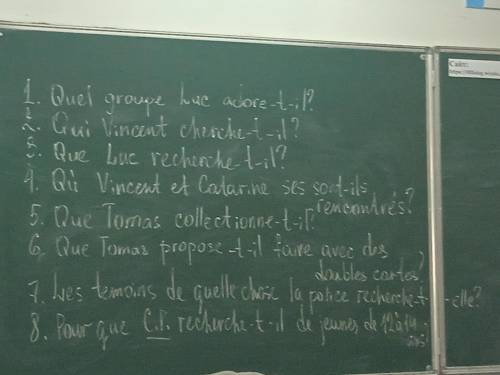 1. Quel groupe Luc adore-t-il?
2. Qui Vincent cherche-t-il?
3. Que Luc recherche-t-il?
4. Où Vincent et Catarine ses sont-ils
rencontrés?
5. Que Tomas collectionne-t-il?
6. Que Tomas propose-t-il faire avec des
doubles cartes?
7. Les temoins de quelle chose la police recherche-t-elle?
8. Pour que C.P. recherche-t-il de jeunes de 12 à 14
ans?
Сайт: